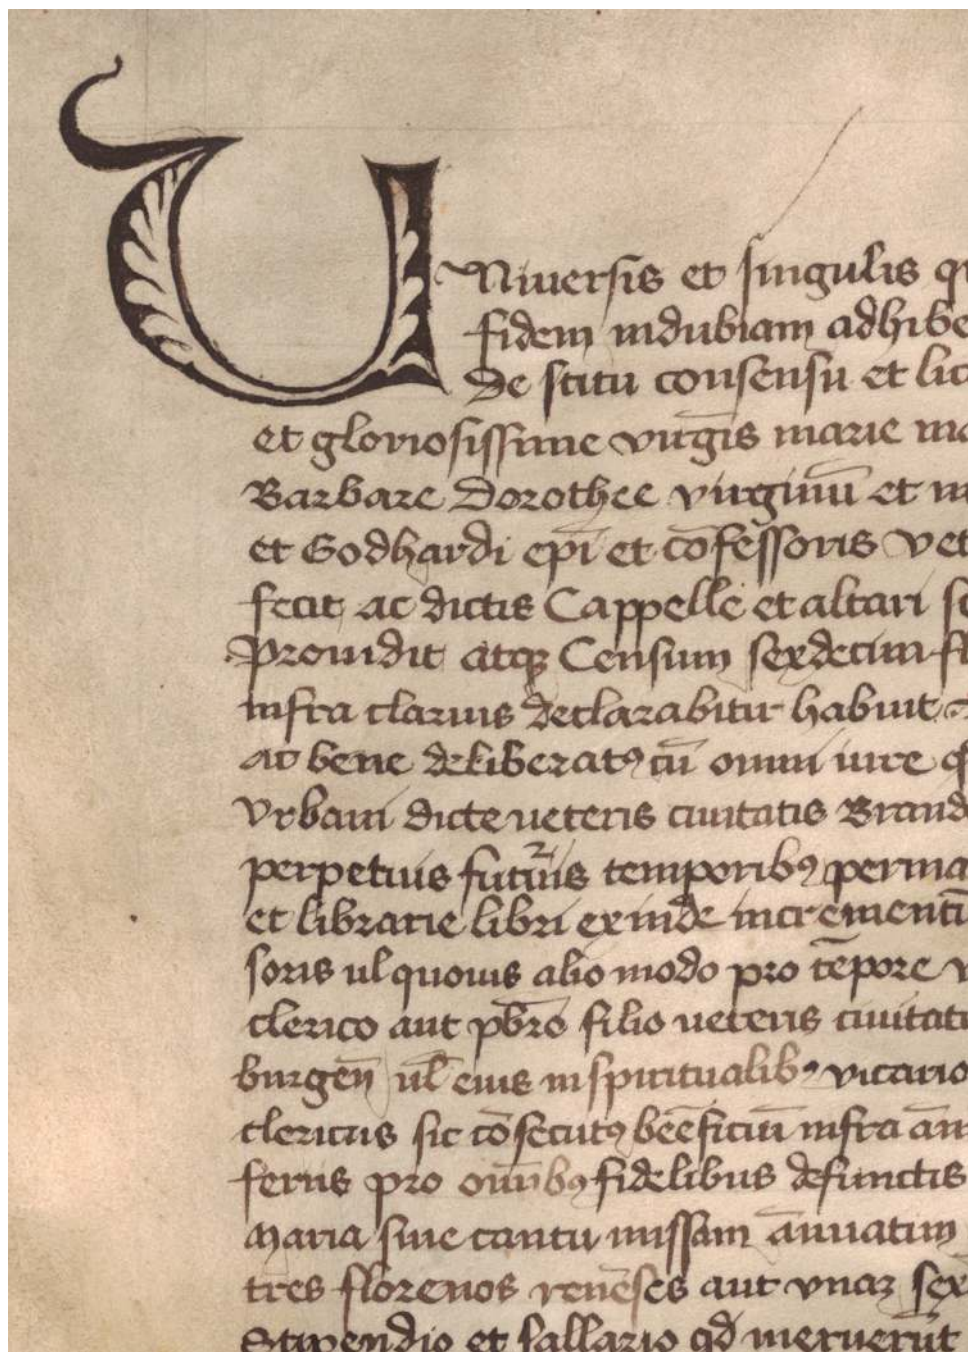 Universis et singulis
fidem indubiam adhibe
De scitu consensu et lic
et gloriosissime virgīs marie ma
Barbare Dorothee virginū et m
et Godhardi epī et cōfessoris vet
fecit ac dictis Cappelle et altari
Prouidit atqꝫ Censum sexdecim fl
infra clarius declarabitur habuit
ac bene deliberatꝰ cū omni iure
Vrbani dicte ueteris ciuitatis Brand
perpetuis futuris temporibꝰ perma
et librarie libri exinde incrementū
soris ul quouis alio modo pro tēpore v
clerico aut pb̄ro filio ueteris ciuitati
burgeñ ul̄ eius in spiritualibꝰ vicario
clericus sic cōsecutꝰ beēficiū infra an̄
feriis pro om̄ibꝰ fidelibus defunctis
Maria siue cantu missam ānuatim
tres florenos renēses aut vnaꝫ sex
Stipendio et sallario qd̄ meruerūt